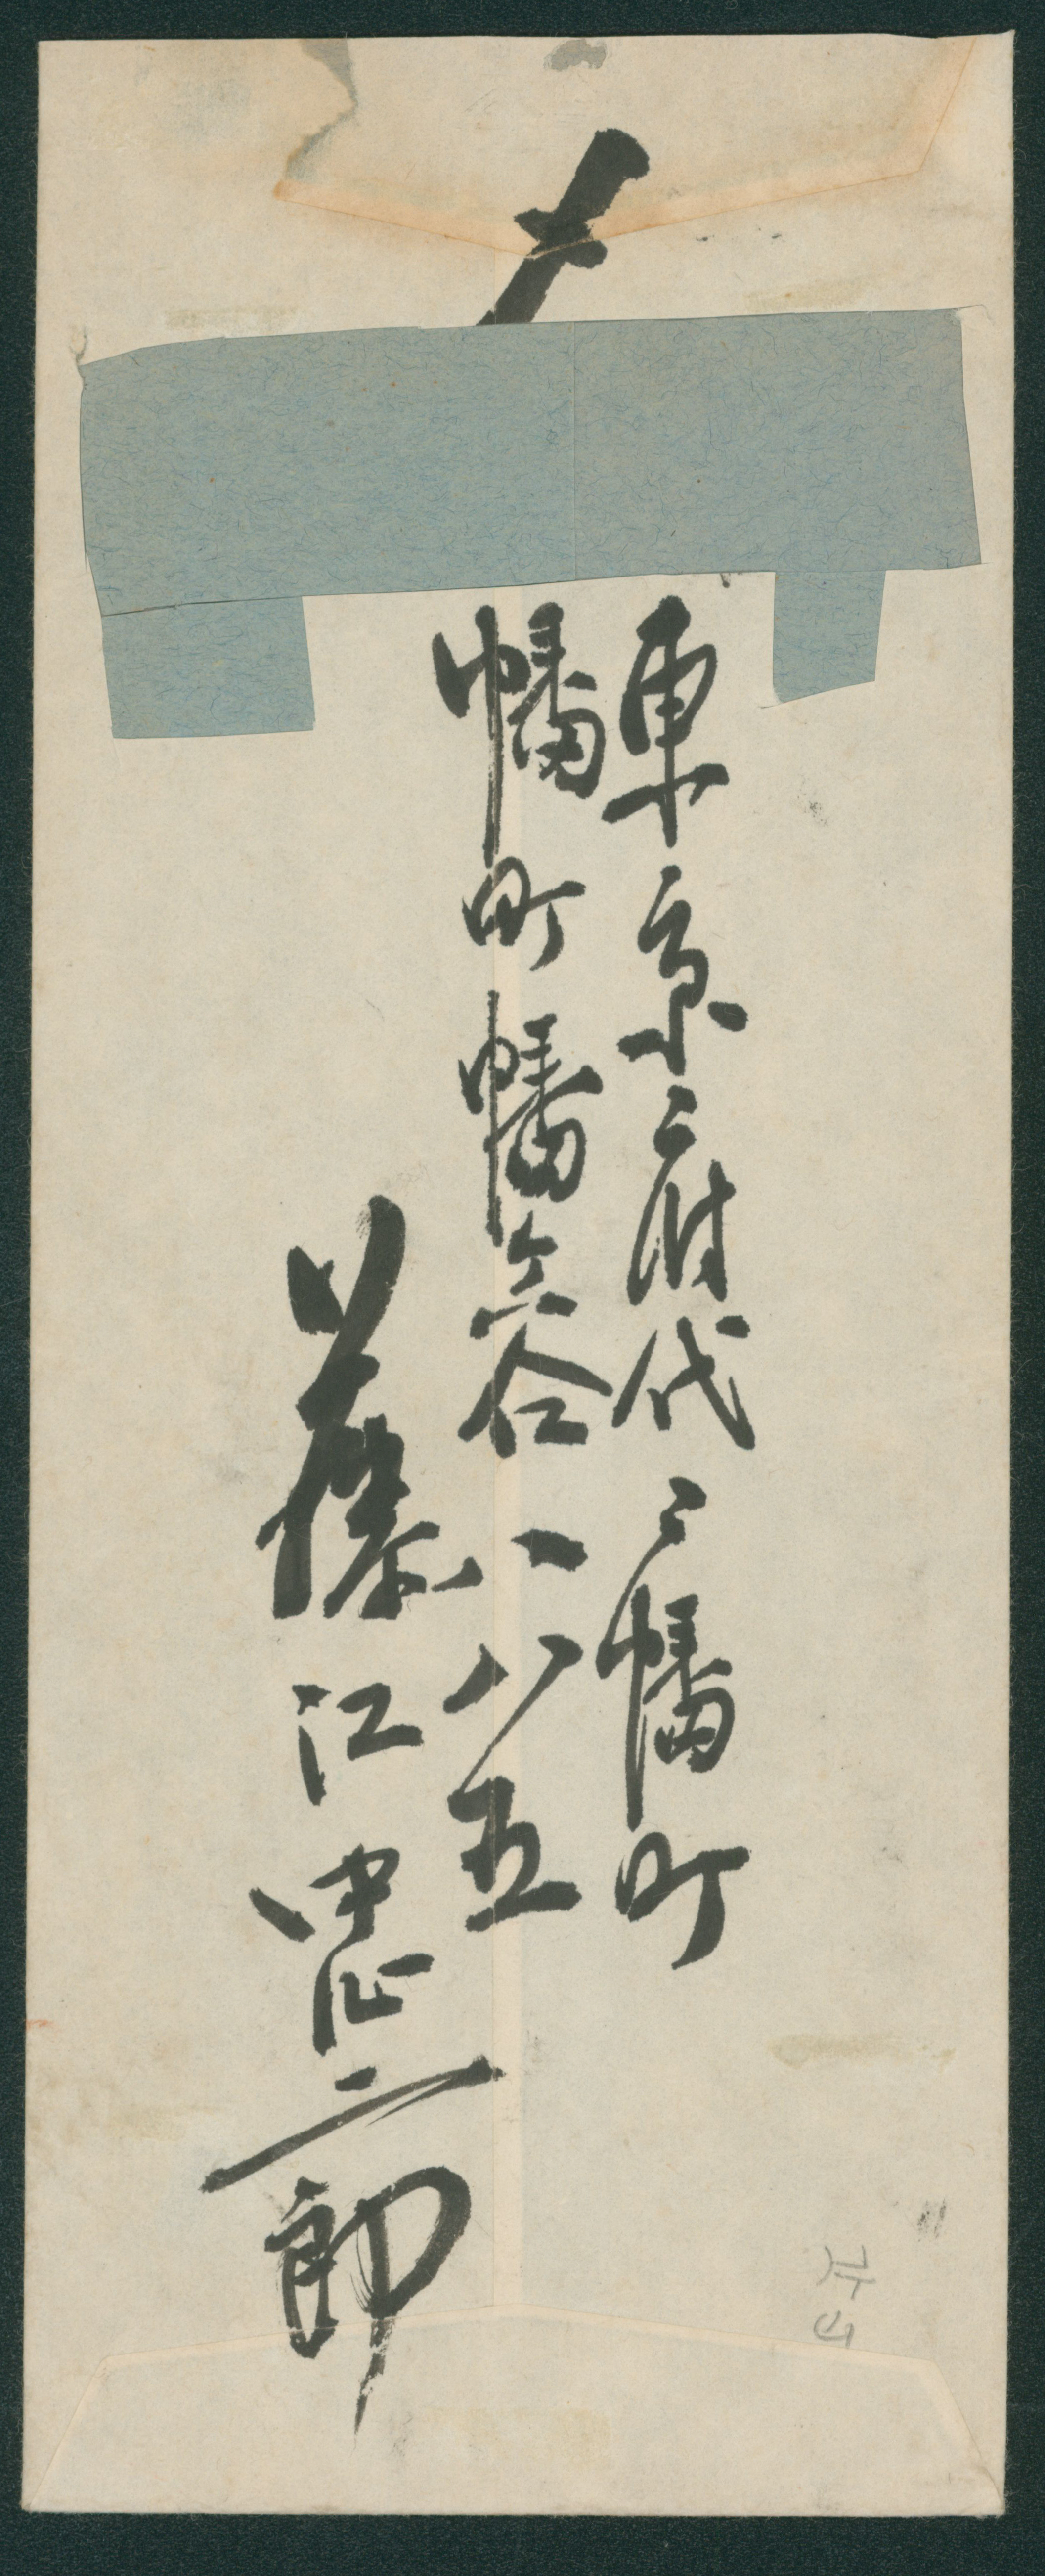 〆
東京府代々幡町
幡町幡ヶ谷八八五
藤江忠二郎